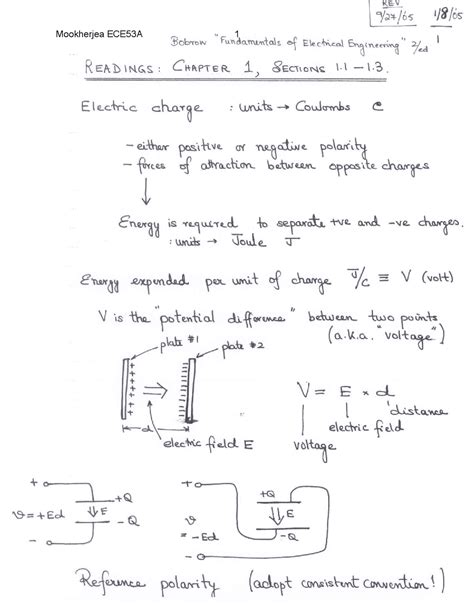 REV
9/27/05
1/8/05
Mookherjea ECE53A
1
Bobrow "Fundamentals of Electrical Engineering" 2/ed
1
READINGS: CHAPTER 1, SECTIONS 1.1 – 1.3.
Electric charge : units → Coulombs C
– either positive or negative polarity
– forces of attraction between opposite charges
Energy is required to separate +ve and -ve charges.
: units → Joule J
Energy expended per unit of charge J/C ≡ V (volt)
V is the "potential difference" between two points
(a.k.a. "voltage")
plate #1
plate #2
V = E × d
distance
electric field
voltage
d
electric field E
+
+Q
v = +Ed
E
-Q
-
+
+Q
v
= -Ed
E
-Q
-
Reference polarity (adopt consistent convention!)